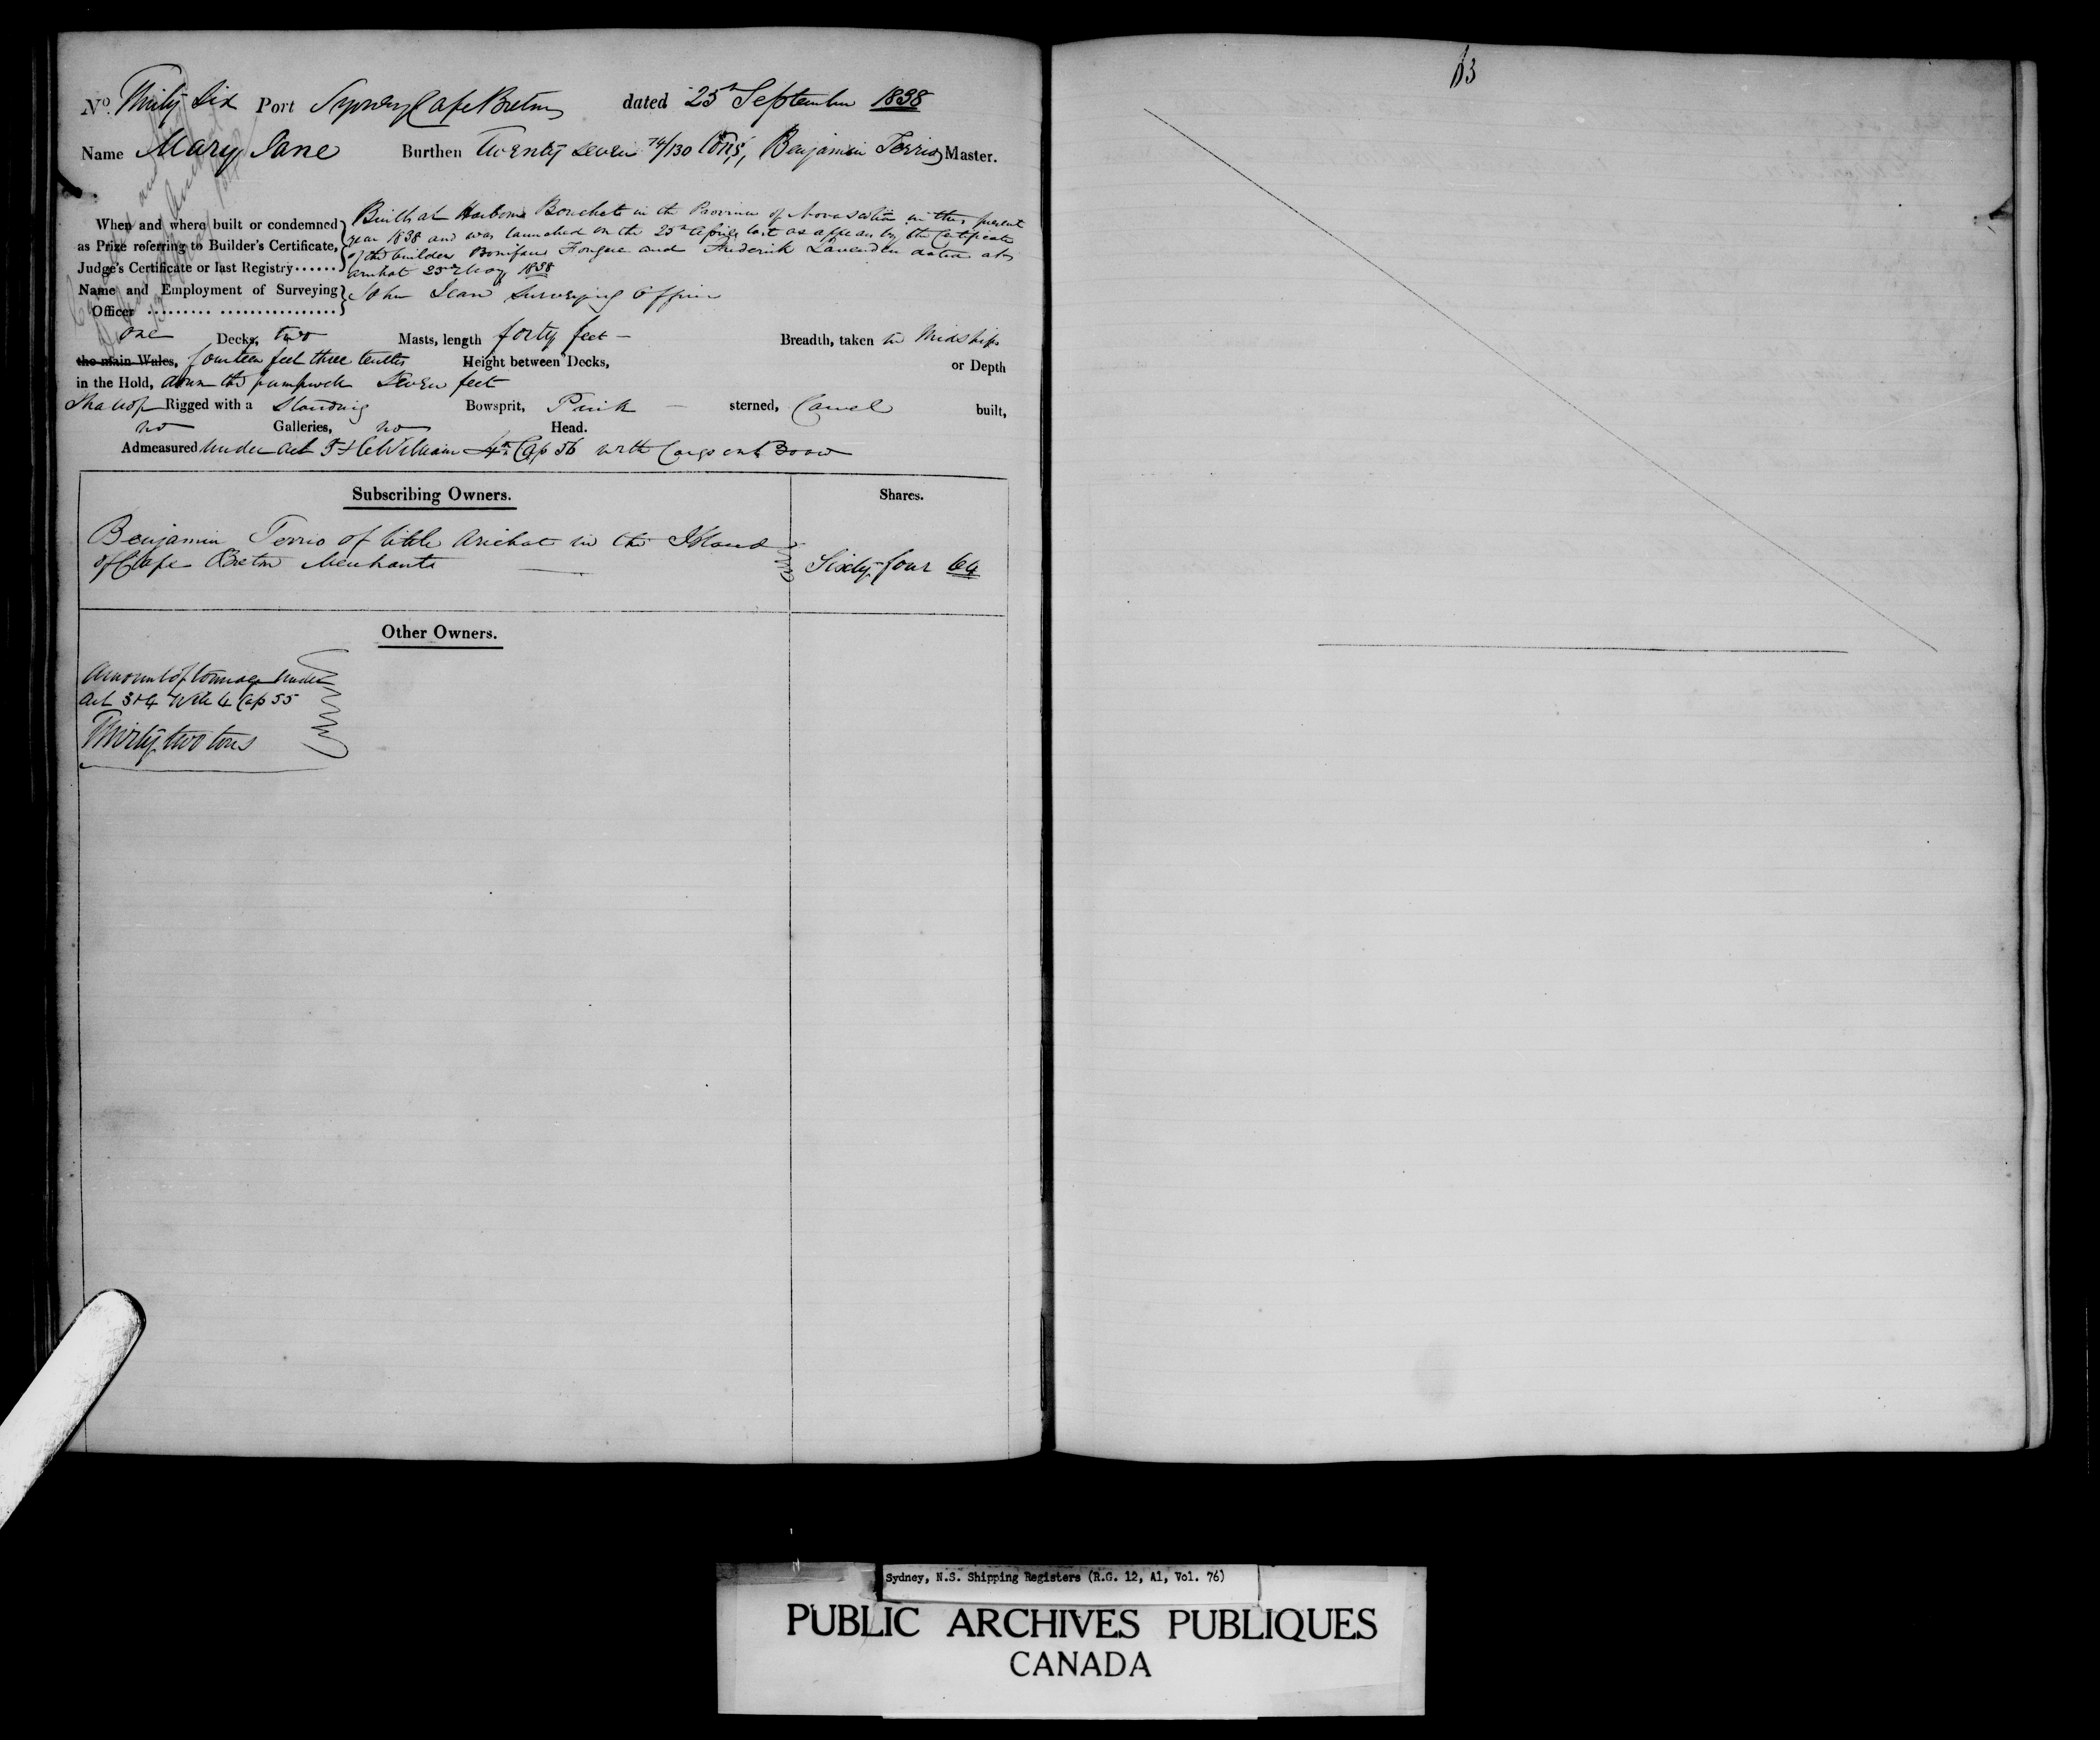 No. Thirty Six Port Sydney Cape Breton dated 25th September 1838
Name Mary Jane Burthen Twenty Seven 74/130 Tons, Benjamin Terrio Master.
When and where built or condemned as Prize referring to Builder's Certificate, Judge's Certificate or last Registry
Built at Harbour Bouchete in the Province of Nova Scotia in this present
year 1838 and was launched on the 25th April last as appears by the Certificate
of the builders Boniface Fougere and Frederick Lavender dated at
Arichat 23rd May 1838
Name and Employment of Surveying Officer
John Jean Surveying Officer
one Decks, two Masts, length forty feet Breadth, taken in Midships
the main Wales, fourteen feet three tenths Height between Decks, or Depth
in the Hold, down the pumpwell Seven feet
Shallop Rigged with a Standing Bowsprit, Pink sterned, Carvel built,
no Galleries, no Head.
Admeasured under Act 5 & 6 William 4th Cap 56 with Cargo on Board
Subscribing Owners. Shares.
Benjamin Terrio of little Arichat in the Island
of Cape Breton Merchant Sixty four 64
Other Owners.
Amount of tonnage under
Act 3 & 4 Will 4 Cap 55
Thirty two tons
13
Sydney, N.S. Shipping Registers (R.G. 12, A1, Vol. 76)
PUBLIC ARCHIVES PUBLIQUES
CANADA